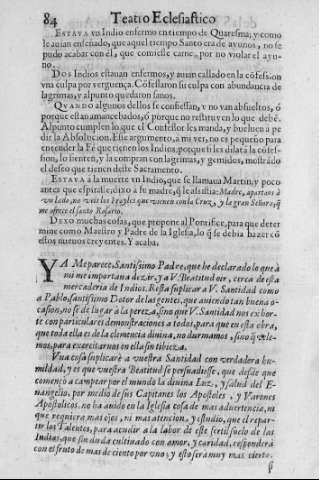 84 Teatro Eclesiastico
ESTAVA vn Indio enfermo en tiempo de Quaresma, y como
le auian enseñado, que aquel tiempo Santo era de ayunos, no se
pudo acabar con él, que comiesse carne, por no violar el ayu-
no.
DOS Indios estauan enfermos, y auian callado en la cõfession
vna culpa por verguença. Cõfessaron su culpa con abundancia de
lagrimas, y al punto quedaron sanos.
QVANDO algunos dellos se confiessan, y no van absueltos, ó
porque estan amancebados, ó porque no restituyen lo que debẽ.
Al punto cumplen lo que el Confessor les manda, y bueluen à pe
dir la Absolucion. Este argumento, a mi ver, no es pequeño para
entender la Fé que tienen los Indios, porque si les dilatã la cõfes-
sion, lo sienten, y la compran con lagrimas, y gemidos, mostrãdo
el desseo que tienen deste Sacramento.
ESTAVA à la muerte vn Indio, que se llamaua Martin, y poco
antes que espirasse, dixo à su madre, q̃ le assistia: Madre, apartaos à
vn lado, no veis los que vienen con la Cruz, y la gran Señora, q̃
me ofrece el santo Rosario.
DEXO muchas cosas, que propone al Pontifice, para que deter
mine como Maestro y Padre de la Iglesia, lo q̃ se debia hazer cõ
estos nueuos creyentes. Y acaba.
YA Me parece, Santissimo Padre, que he declarado lo que à
mi me importaua dezir, y a V. Beatitud oir, cerca de esta
mercaderia de Indios. Resta suplicar a V. Santidad como
a Pablo, santissimo Dotor de las gentes, que auiendo tan buena o-
casion, no se de lugar à la pereza, sino que V. Santidad nos exhor-
te con particulares demonstraciones a todos, para que en esta obra,
que toda ella es de la clemencia diuina, no durmamos, sino q̃ vele-
mos, para exercitarnos en ella sin tibieza.
Vna cosa suplicarè a vuestra Santidad con verdadera hu-
mildad, y es que vuestra Beatitud se persuadiesse, que desde que
començò a campear por el mundo la diuina Luz, y salud del E-
uangelio, por medio de sus Capitanes los Apostoles, y Varones
Apostolicos, no ha auido en la Iglesia cosa de mas aduertencia, ni
que requiera mas ojos, ni mas atencion, y estudio, que el repar-
tir los Talentos, para acudir a la labor de este fertil suelo de las
Indias, que sin duda cultiuado con amor, y caridad, responderà
con el fruto de mas de ciento por vno; y esto serà muy mas cierto,